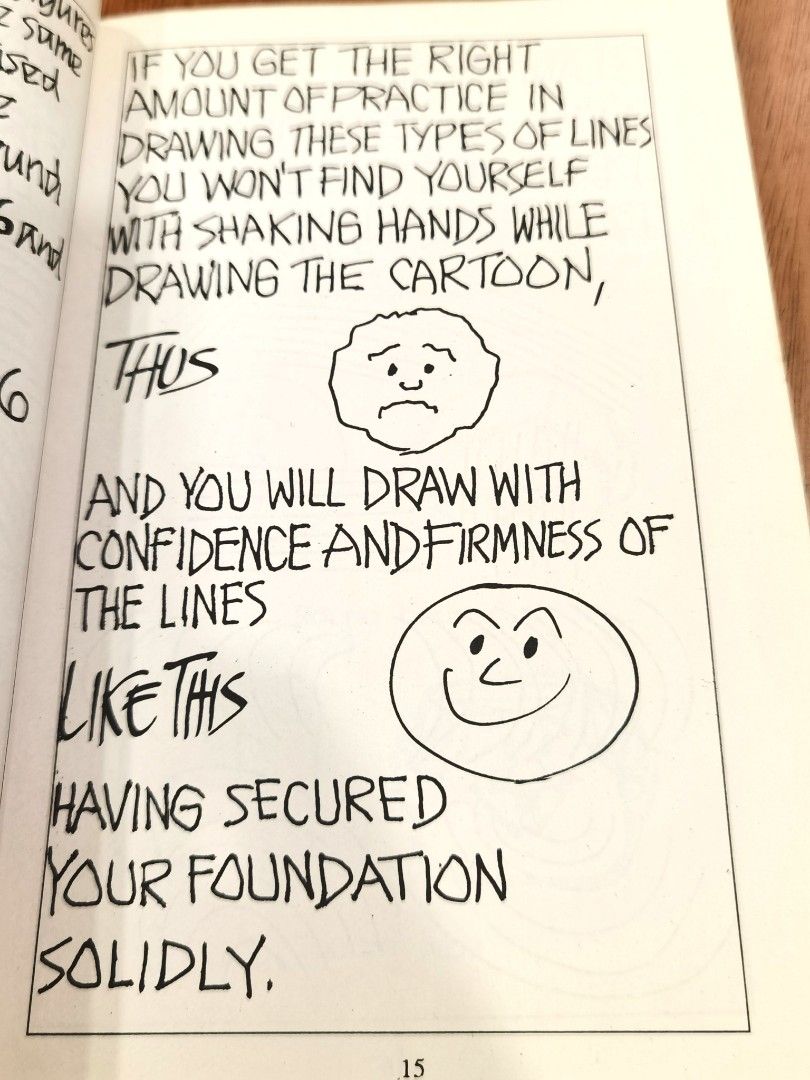 IF YOU GET THE RIGHT
AMOUNT OF PRACTICE IN
DRAWING THESE TYPES OF LINES
YOU WON'T FIND YOURSELF
WITH SHAKING HANDS WHILE
DRAWING THE CARTOON,
THUS
AND YOU WILL DRAW WITH
CONFIDENCE AND FIRMNESS OF
THE LINES
LIKE THIS
HAVING SECURED
YOUR FOUNDATION
SOLIDLY.
15
same
6